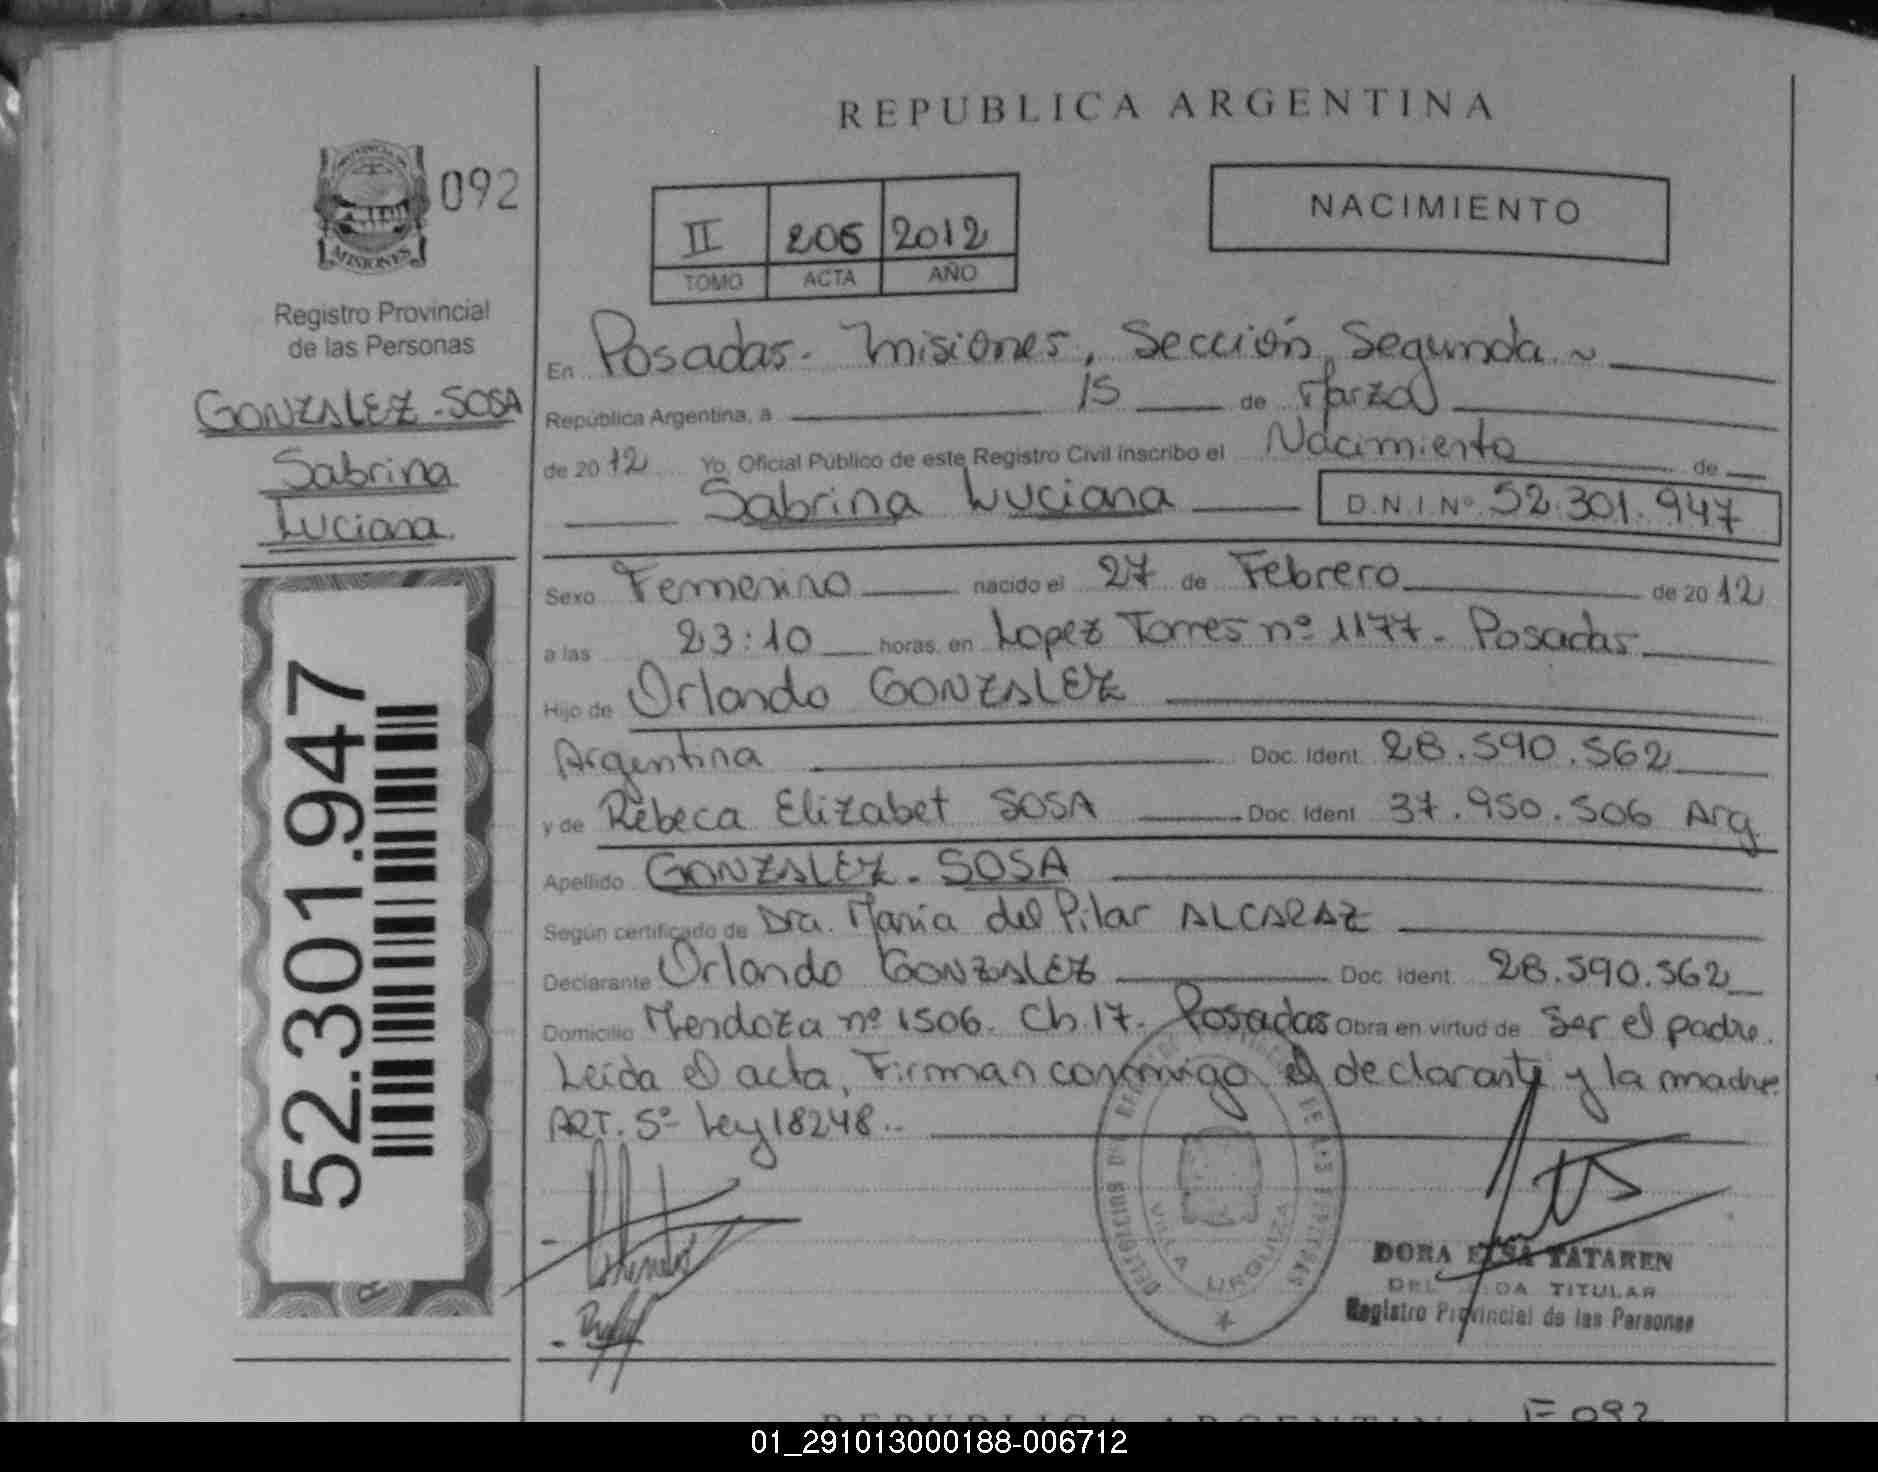 REPUBLICA ARGENTINA
092
MISIONES
Registro Provincial
de las Personas
GONZALEZ - SOSA
Sabrina
Luciana
52.301.947
II 206 2012
TOMO ACTA AÑO
NACIMIENTO
En Posadas - Misiones, Sección Segunda
República Argentina, a 15 de Marzo
de 2012 Yo, Oficial Público de este Registro Civil inscribo el Nacimiento de
Sabrina Luciana D.N.I Nº 52.301.947
Sexo Femenino nacido el 27 de Febrero de 2012
a las 23:10 horas, en Lopez Torres nº 1177 - Posadas
Hijo de Orlando GONZALEZ
Argentina Doc. Ident. 28.590.562
y de Rebeca Elizabet SOSA Doc. Ident. 37.950.506 Arg.
Apellido GONZALEZ - SOSA
Según certificado de Dra. Maria del Pilar ALCARAZ
Declarante Orlando GONZALEZ Doc. Ident. 28.590.562
Domicilio Mendoza nº 1506. Ch. 17. Posadas Obra en virtud de Ser el padre.
Leida el acta, Firman conmigo el declarante y la madre
ART. 5º Ley 18248..
VILLA URQUIZA
DORA ELSA TATAREN
TITULAR
Registro Provincial de las Personas
REPUBLICA ARGENTINA
F 092
01_291013000188-006712